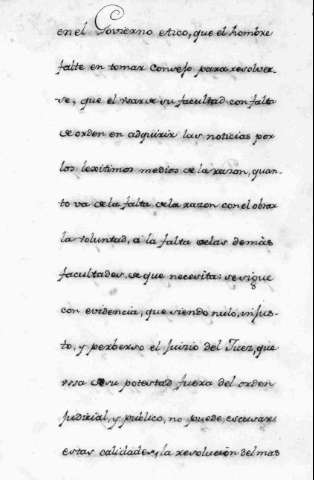 en el Govierno etico, que el hombre
falte en tomar Consejo para resolver-
se, que el usar de su facultad con falta
de orden en adquirir las noticias por
los lexitimos medios de la razon, quan-
to va de la falta de la razon con el obrar
la voluntad, a la falta de las demàs
facultades de que necesita: se sigue
con evidencia, que siendo nulo, injus-
to, y perberso el Juizio del Juez, que
usa de su potestad fuera del orden
judicial, y publico, no puede escusar
estas calidades, la resolución del mas